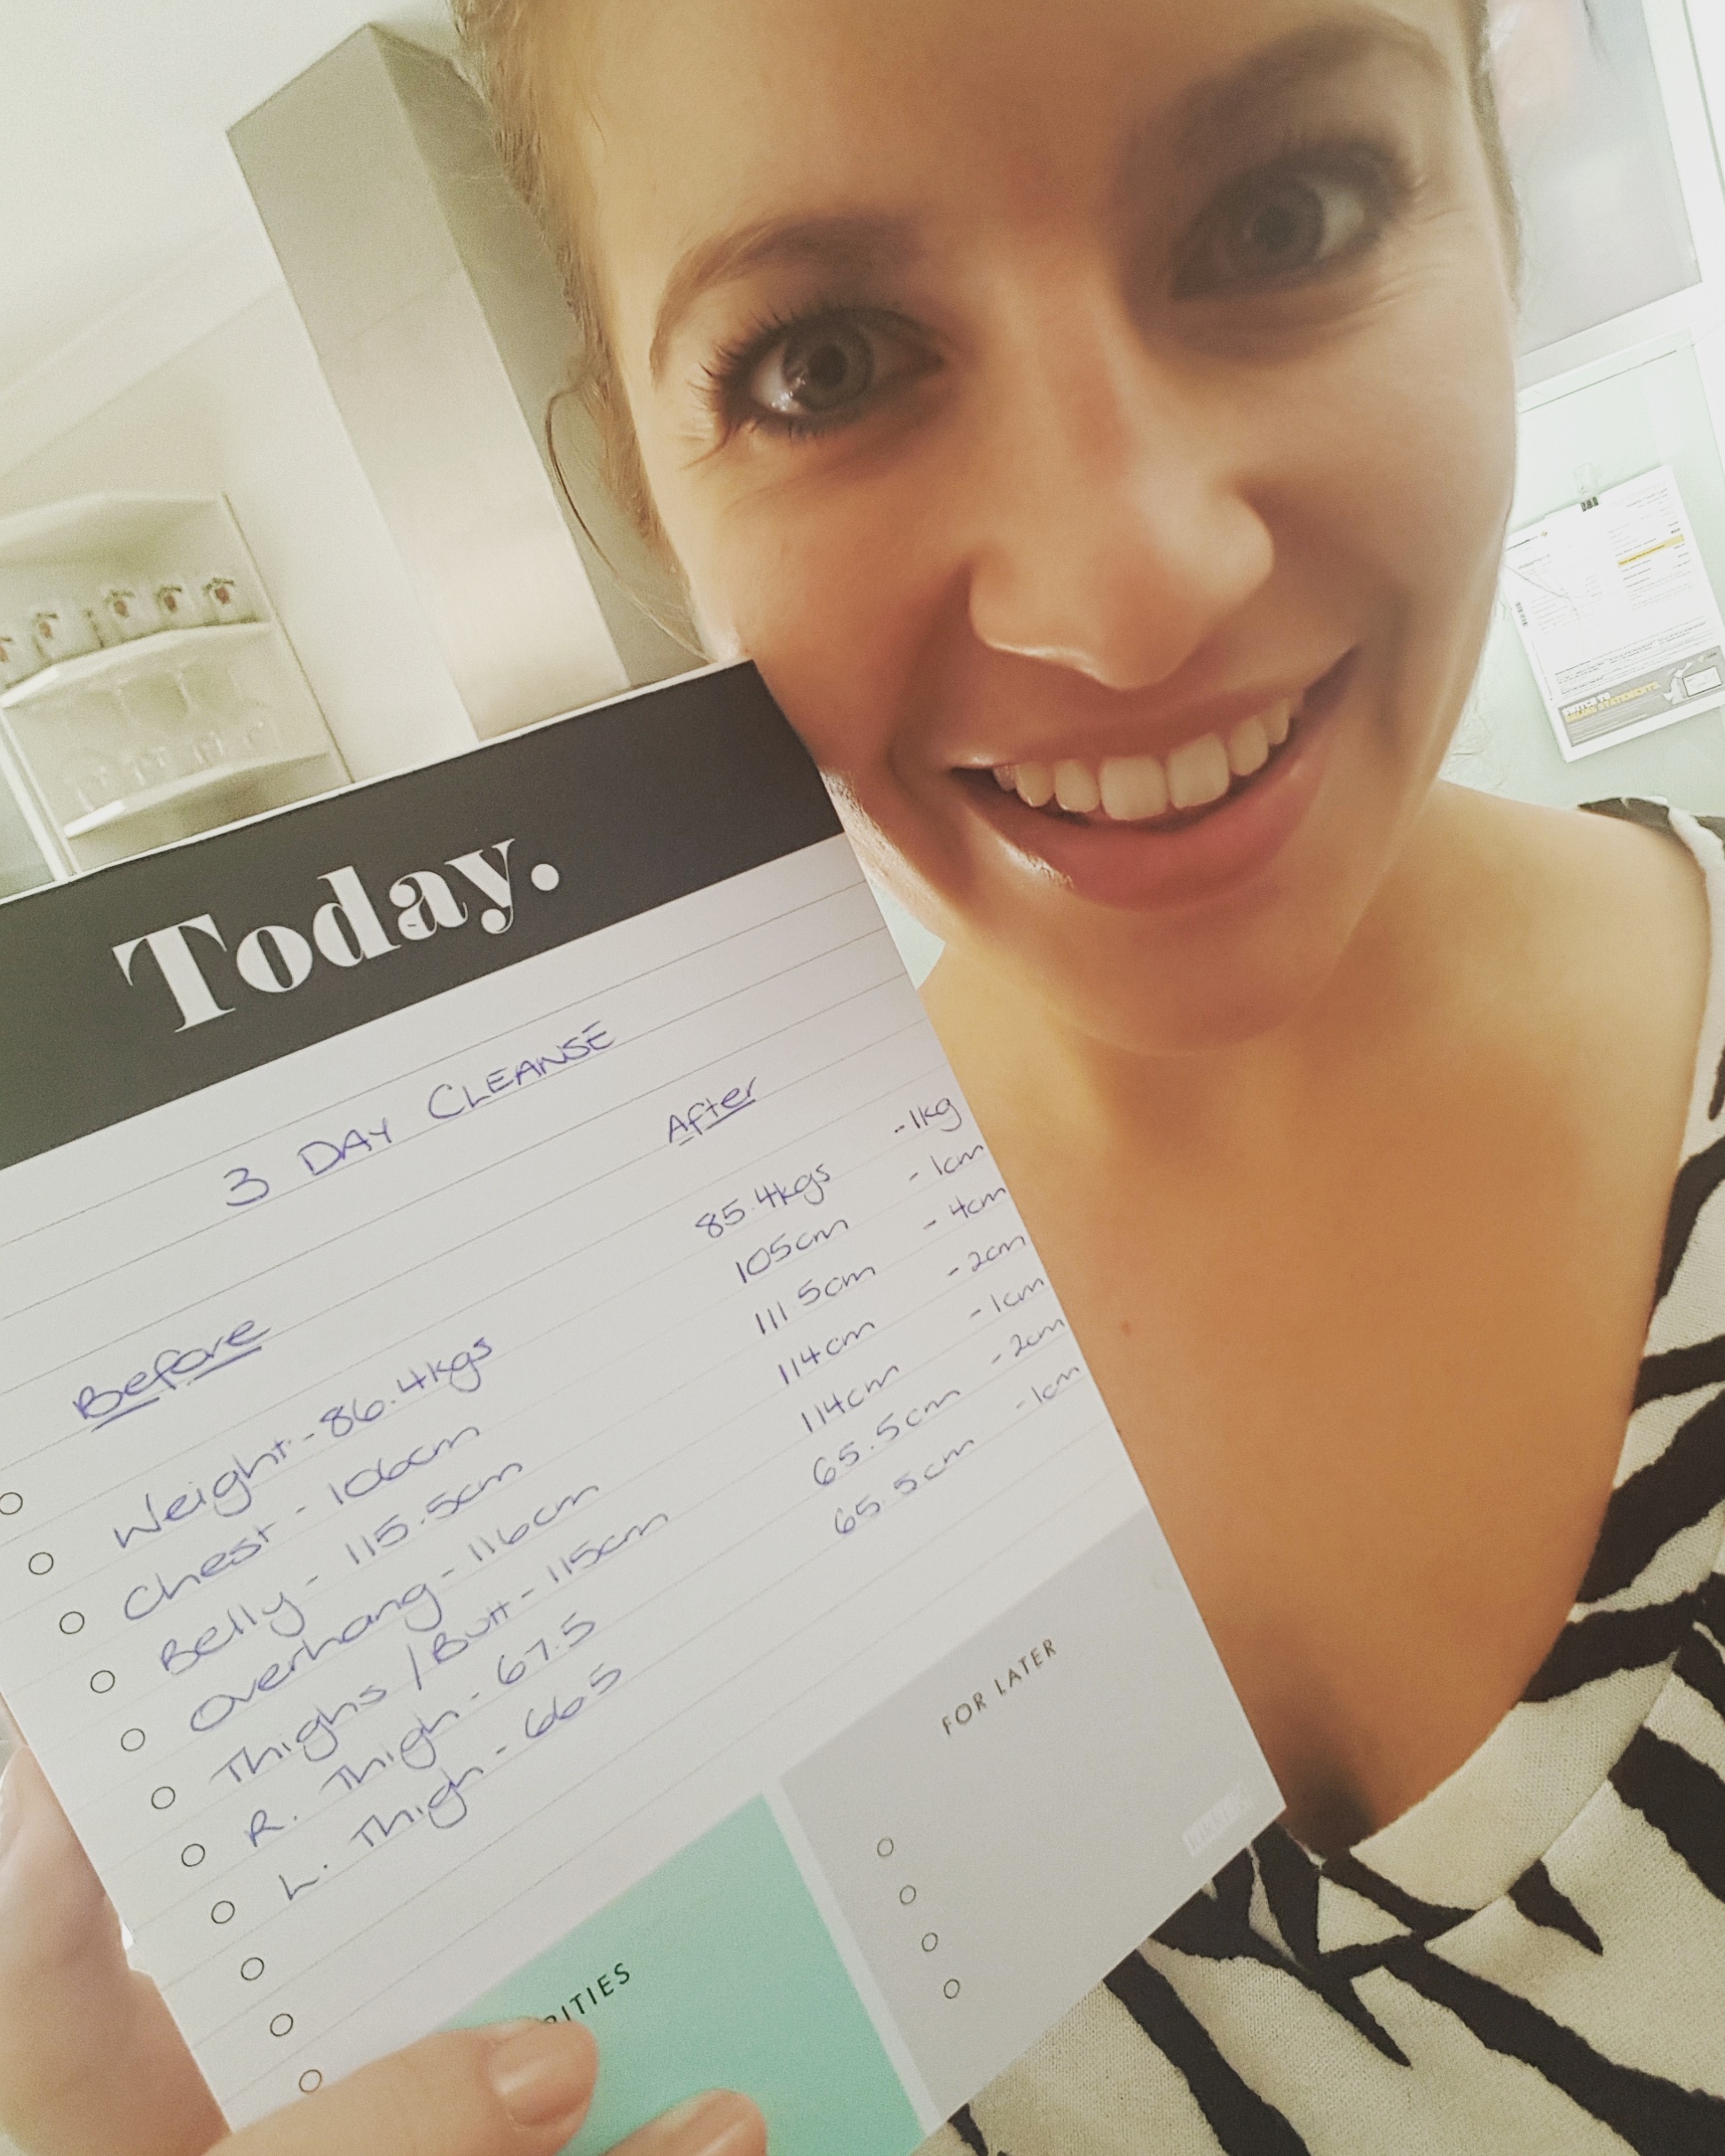 Today.
3 DAY CLEANSE
Before After
Weight - 86.4kgs 85.4kgs -1kg
Chest - 106cm 105cm - 1cm
Belly - 115.5cm 111 5cm - 4cm
Overhang - 116cm 114cm - 2cm
Thighs / Butt - 115cm 114cm - 1cm
R. Thigh - 67.5 65.5cm - 2cm
L. Thigh - 66 5 65.5cm - 1cm
FOR LATER
RITIES
STATEMENTS.